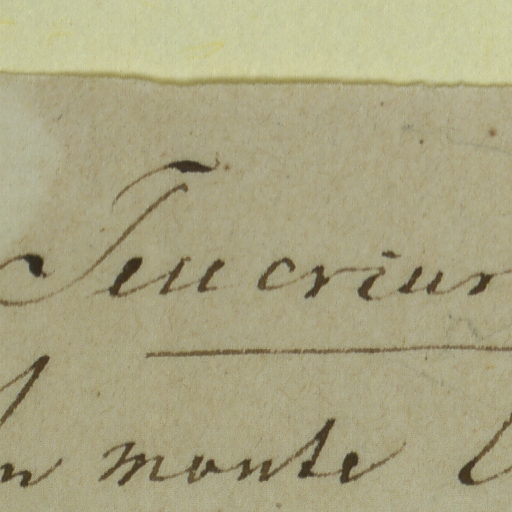 Teucrium
In monte